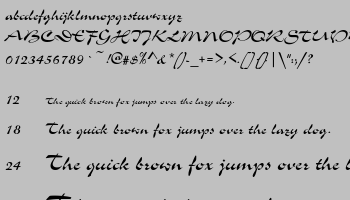 abcdefghijklmnopqrstuvwxyz
ABCDEFGHIJKLMNOPQRSTUVW
0123456789 ` ~ !@#$%^&*()-_+=>,<.[]{}|\":;/?
12 The quick brown fox jumps over the lazy dog.
18 The quick brown fox jumps over the lazy dog.
24 The quick brown fox jumps over the la